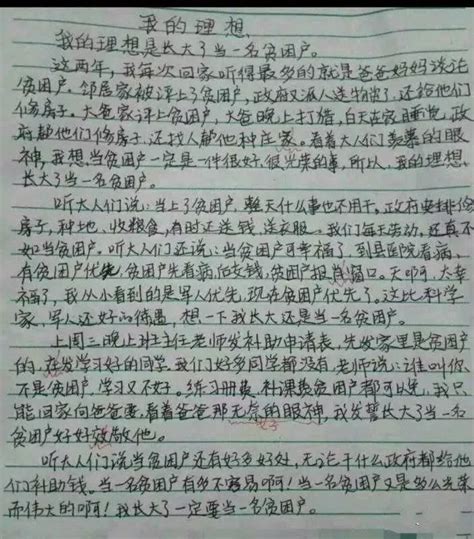 我的理想
我的理想是长大了当一名贫困户。
这两年，我每次回家听得最多的就是爸爸妈妈谈论
贫困户。邻居家被评上了贫困户，政府又派人送物资了，还给他们
修房子。大爸家评上贫困户，大爸晚上打猎，白天在家睡觉，政
府帮他们修房子，还找人帮他种庄家。看着大人们羡慕的眼
神，我想当贫困户一定是一件很好、很光荣的事，所以，我的理想
长大了当一名贫困户。
听大人们说：当上了贫困户，整天什么事也不用干，政府安排修
房子，种地、收粮食，有时还送钱、送衣服。我们每天劳动，还真不
如当贫困户。听大人们还说：当贫困户可幸福了，到县医院看病，
有贫困户优先，贫困户先看病后交钱，贫困户报销窗口。天啊，太幸
福了，我从小看到的是军人优先，现在贫困户优先了。这比科学
家，军人还好的待遇，想一下我长大还是当一名贫困户。
上周三晚上班主任老师发补助申请表，先发家里是贫困户
的，在发学习好的同学，我们好多同学都没有，老师说：谁叫你
不是贫困户，学习又不好。练习册费，补课费贫困户都可以免，我只
能回家向爸爸要，看着爸爸那无奈的眼神，我发誓长大了当一名
贫困户好好孝敬他。
听大人们说当贫困户还有好多好处，无论干什么政府都给他
们补助钱。当一名贫困户有多不容易啊！当一名贫困户又是多么光荣
而伟大的啊！我长大了一定要当一名贫困户。